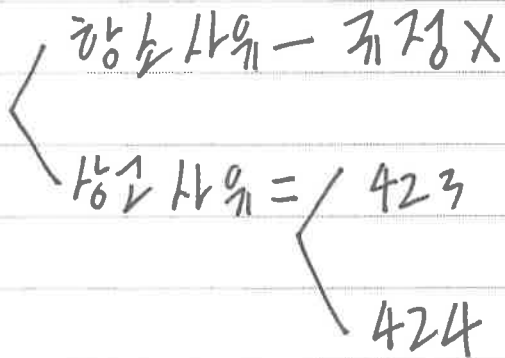 항소사위 - 규정 X
상고 사위 = 423
424